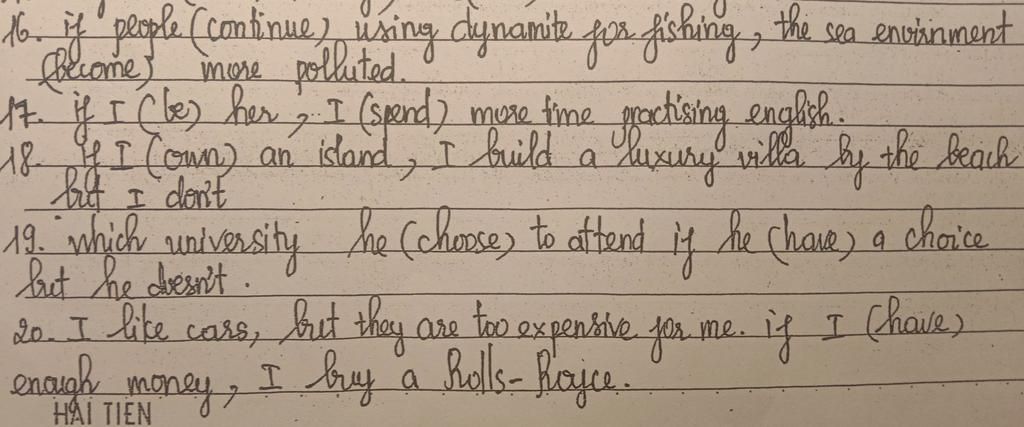 16. if people (continue) using dynamite for fishing, the sea envirnment
(become) more polluted.
17. if I (be) her, I (spend) more time practising english.
18. if I (own) an island, I build a luxury villa by the beach
but I don't
19. which university he (choose) to attend if he (have) a choice
but he doesn't.
20. I like cars, but they are too expensive for me. if I (have)
enough money, I buy a Rolls-Royce.
HẢI TIẾN